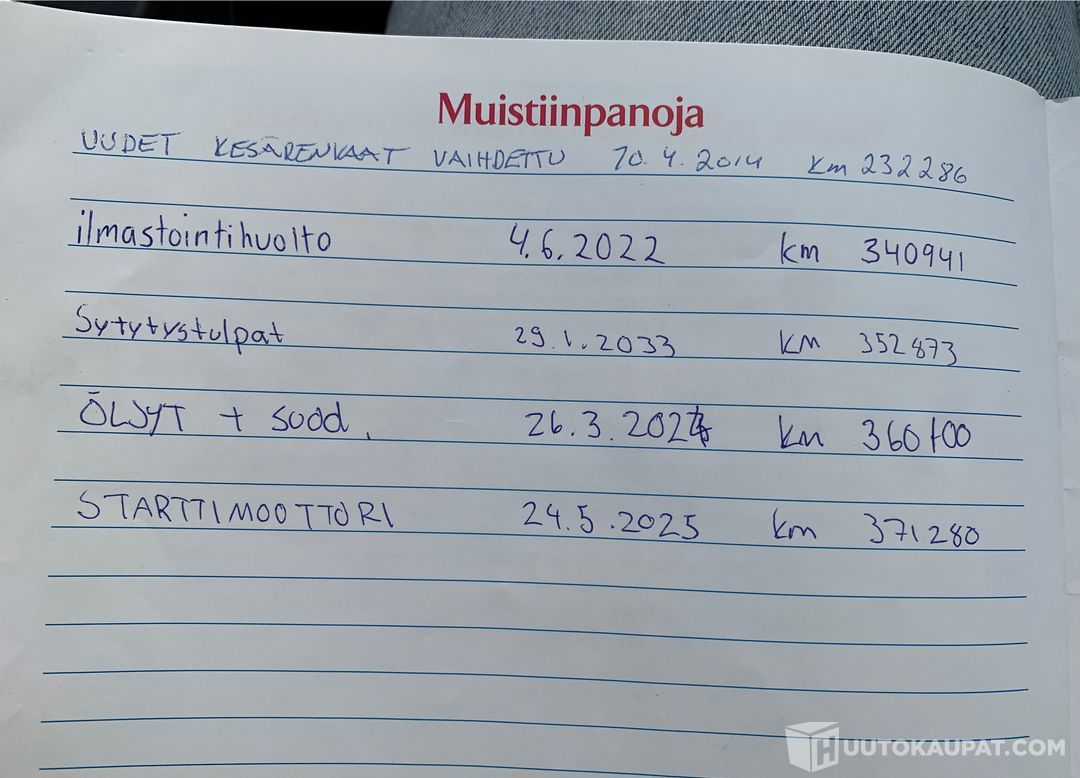 Muistiinpanoja
UUDET KESÄRENKAAT VAIHDETTU 10.4.2014 km 232286
ilmastointihuolto 4.6.2022 km 340941
Sytytystulpat 29.1.2033 KM 352873
ÖLJYT + SUOD. 26.3.2024 km 360100
STARTTIMOOTTORI 24.5.2025 km 371280
HUUTOKAUPAT.COM